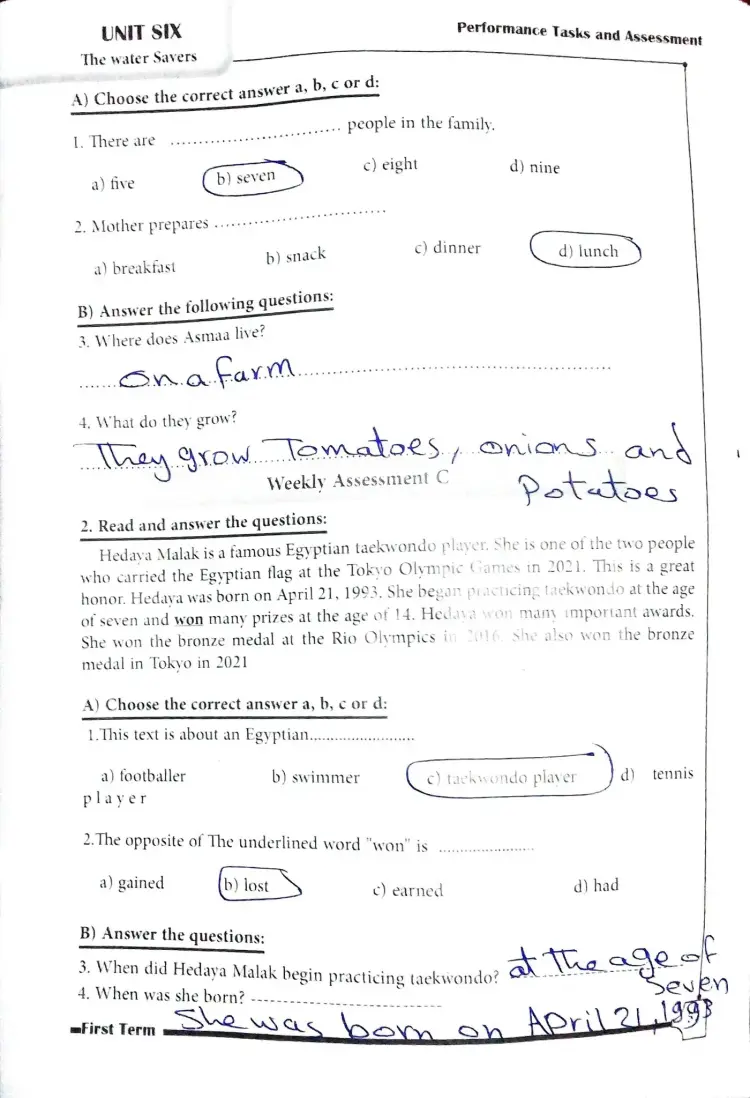 UNIT SIX
The water Savers
Performance Tasks and Assessment
A) Choose the correct answer a, b, c or d:
1. There are .............................. people in the family.
a) five b) seven c) eight d) nine
2. Mother prepares ..............................
a) breakfast b) snack c) dinner d) lunch
B) Answer the following questions:
3. Where does Asmaa live?
on a farm
4. What do they grow?
They grow Tomatoes, onions and
Potatoes
Weekly Assessment C
2. Read and answer the questions:
Hedaya Malak is a famous Egyptian taekwondo player. She is one of the two people
who carried the Egyptian flag at the Tokyo Olympic Games in 2021. This is a great
honor. Hedaya was born on April 21, 1993. She began practicing taekwondo at the age
of seven and won many prizes at the age of 14. Hedaya won many important awards.
She won the bronze medal at the Rio Olympics in 2016. She also won the bronze
medal in Tokyo in 2021
A) Choose the correct answer a, b, c or d:
1.This text is about an Egyptian.........................
a) footballer b) swimmer c) taekwondo player d) tennis
player
2.The opposite of The underlined word "won" is .......................
a) gained b) lost c) earned d) had
B) Answer the questions:
3. When did Hedaya Malak begin practicing taekwondo? at the age of
seven
4. When was she born? ----------------------------
She was born on April 21, 1993
First Term